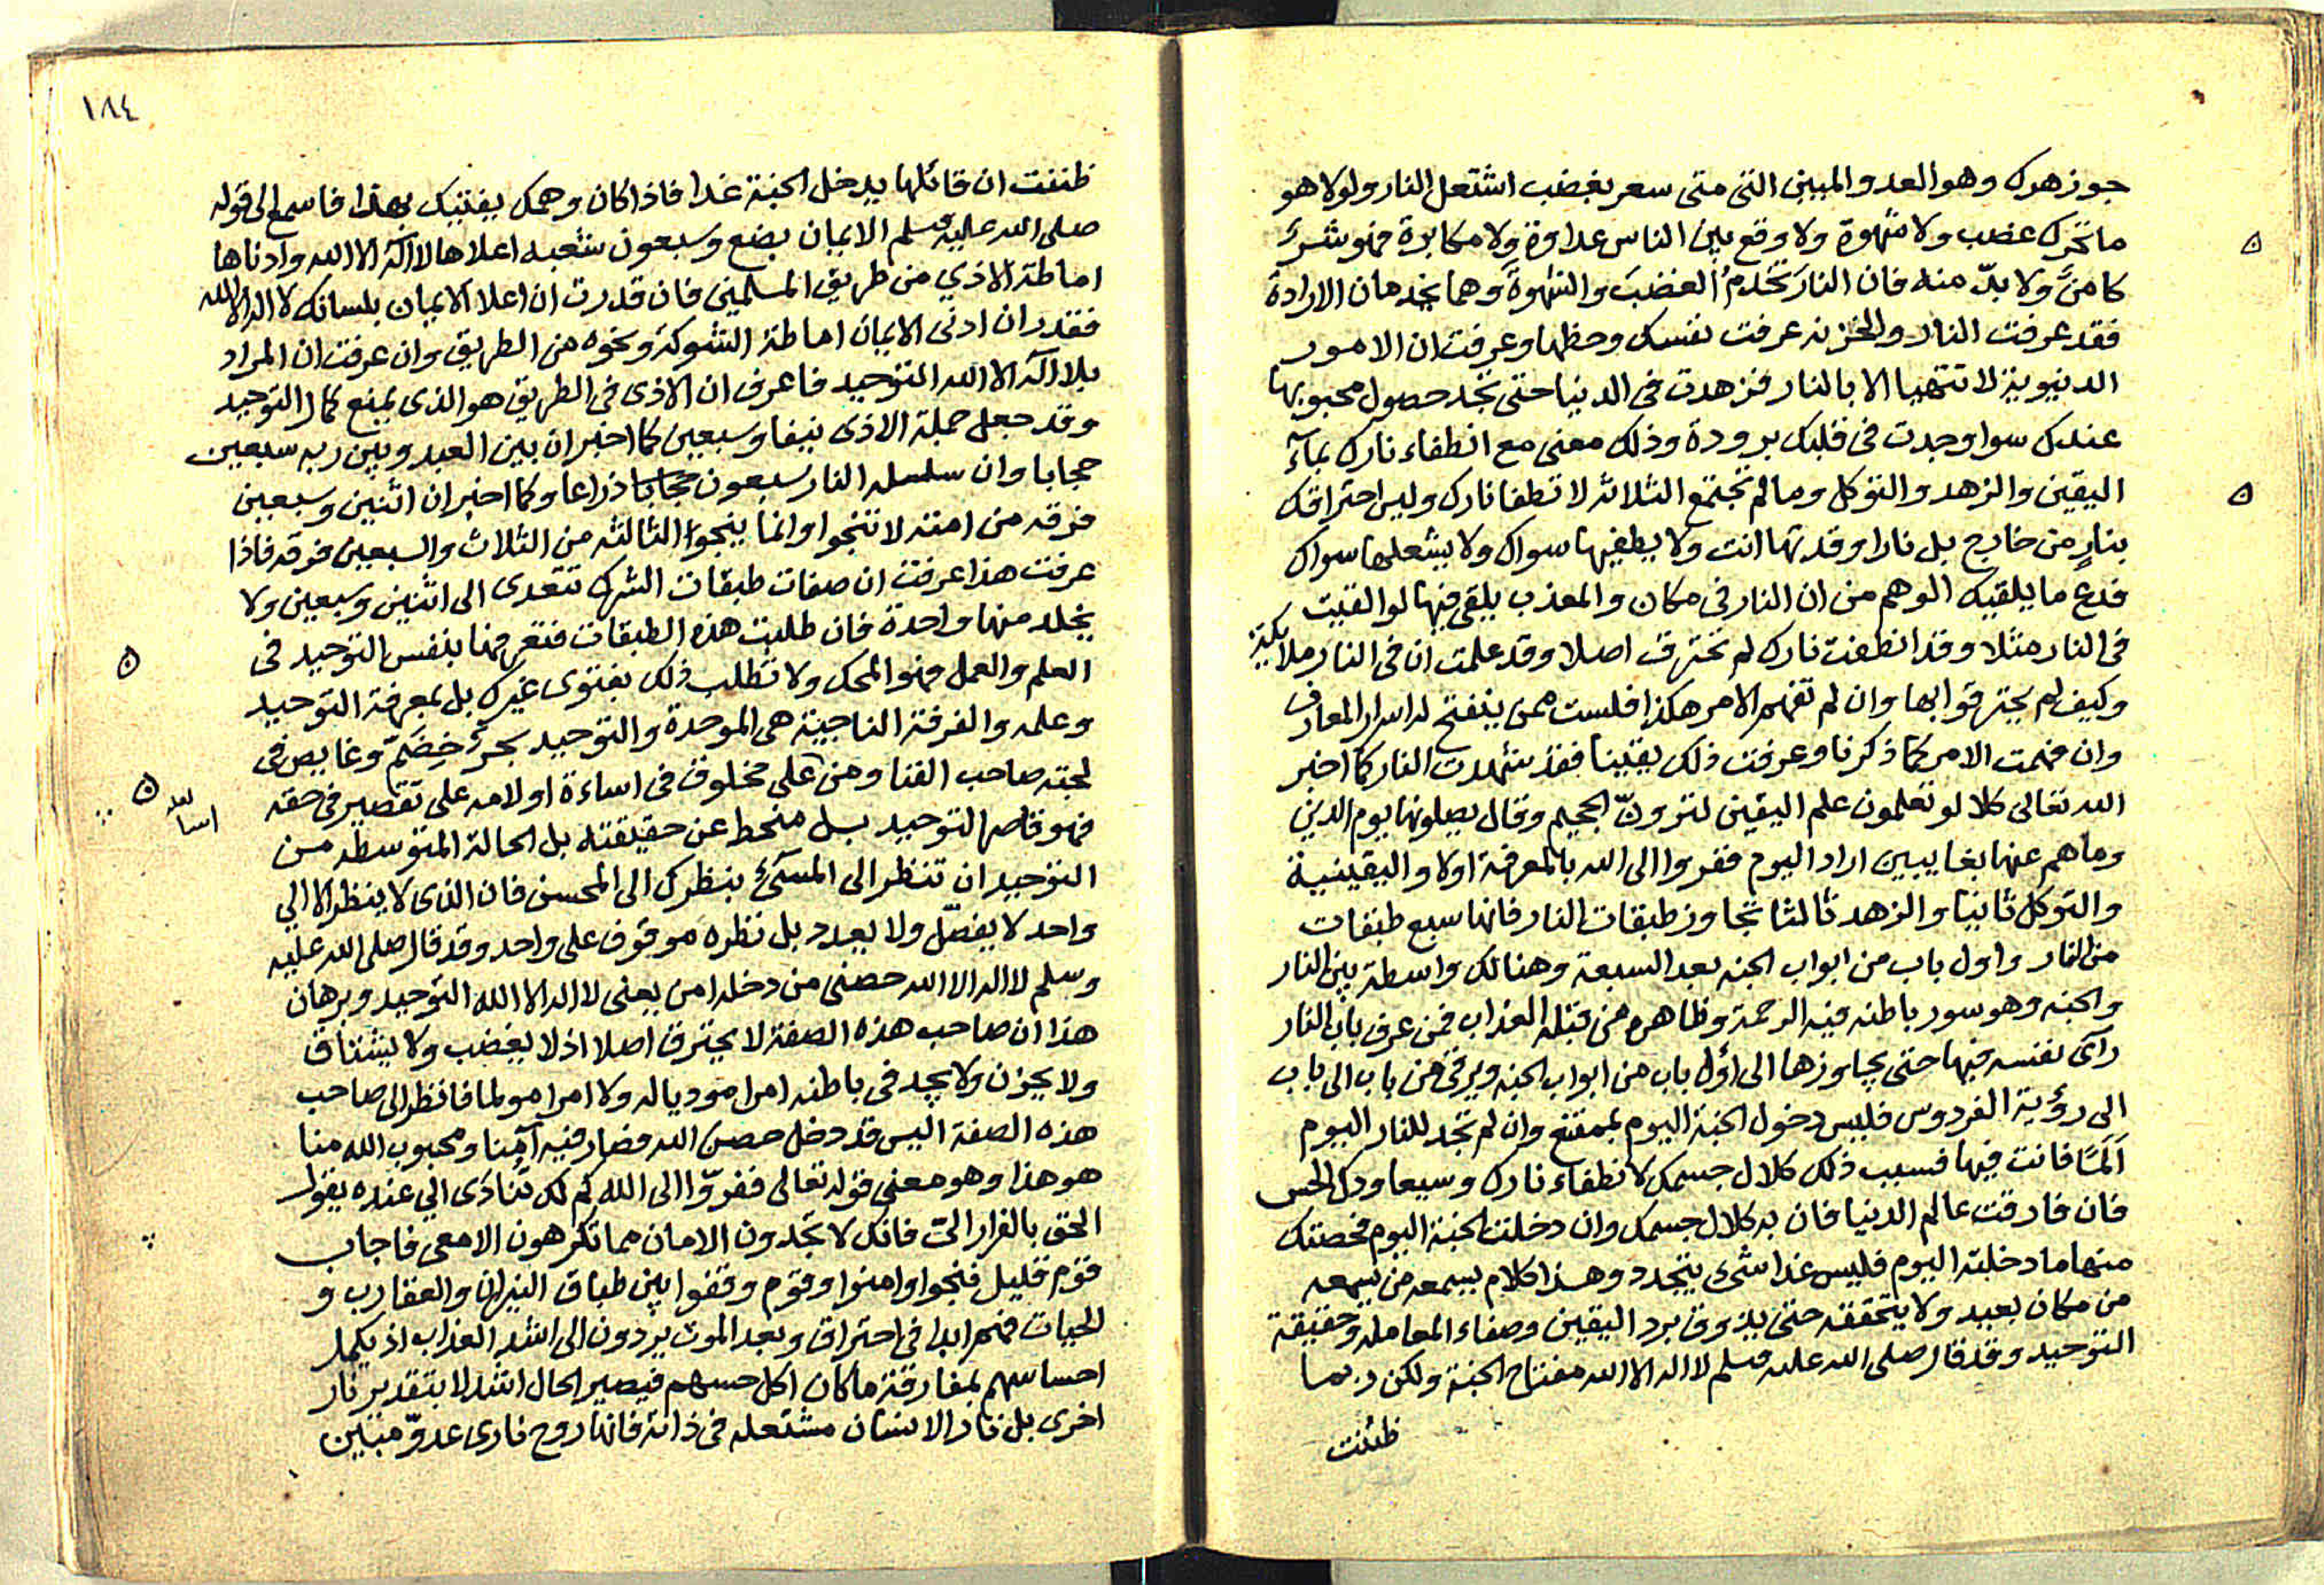 جوزهرك وهو العدو المبين التى متى سعر بغضب اشتعل النار ولولا هو
ما تحرك غضب ولا شهوة ولا وقع بين الناس عداوة ولا مكابرة فهو شرك
كامن ولا بد منه فان النار تخدم الغضب والشهوة وهما يخدمان الارادة
فقد عرفت النار والخزنه عرفت نفسك وحظها وعرفت ان الامور
الدنيوية لا تتهيا الا بالنار فزهدت فى الدنيا حتى تجد حصول محبوبها
عندك سوا وجدت فى قلبك برودة وذلك معنى مع انطفاء نارك بماء
اليقين والزهد والتوكل وما لم تجتمع الثلاثه لا تطفا نارك وليس احتراقك
بنار من خارج بل نارا وقدتها انت ولا يطفيها سواك ولا يشعلها سواك
فدع ما يلقيه الوهم من ان النار فى مكان والمعذب يلقى فيها لو القيت
فى النار مثلا وقد انطفت نارك لم تحترق اصلا وقد علمت ان فى النار ملايكة
وكيف لم يحترقوا بها وان لم تفهم الامر هكذا فلست ممن ينفتح له اسرار المعارف
وان فهمت الامر كما ذكرنا وعرفت ذلك يقينا فقد شهدت النار كما اخبر
الله تعالى كلا لو تعلمون علم اليقين لترون الجحيم وقال يصلونها يوم الدين
وما هم عنها بغايبين اراد اليوم ففروا الى الله بالمعرفة اولا واليقينية
والتوكل ثانيا والزهد ثالثا تجاوز طبقات النار فانها سبع طبقات
من النار واول باب من ابواب الجنه بعد السبعة وهنالك واسطة بين النار
والجنه وهو سور باطنه فيه الرحمة وظاهره من قبله العذاب فمن عرف باب النار
راى نفسه فيها حتى يجاوزها الى اول باب من ابواب الجنه ويرقى من باب الى باب
الى رؤية الفردوس فليس دخول الجنة اليوم بممتنع وان لم تجد للنار اليوم
الما فانت فيها فسبب ذلك كلال جسمك لا نطفاء نارك وسيعاودك الحس
فان فارقت عالم الدنيا فان به كلال جسمك وان دخلت الجنة اليوم فحصتك
منها ما دخلته اليوم فليس غدا شى يتجدد وهذا كلام يسمعه من يسمعه
من مكان بعيد ولا يتحققه حتى يذوق برد اليقين وصفاء المعامله وحقيقة
التوحيد وقد قال صلى الله عليه وسلم لا اله الا الله مفتاح الجنة ولكن ربما
ظننت
١٨٤
ظننت ان قائلها يدخل الجنة غدا فاذا كان وهمك يفتيك بهذا فاسمع الى قوله
صلى الله عليه وسلم الايمان بضع وسبعون شعبه اعلاها لا اله الا الله وادناها
اماطة الاذي من طريق المسلمين فان قدرت ان اعلا الايمان بلسانك لا اله الا الله
فقدر ان ادنى الايمان اماطة الشوكة ونحوه من الطريق وان عرفت ان المراد
بلا اله الا الله التوحيد فاعرف ان الاذى فى الطريق هو الذى يمنع كمال التوحيد
وقد جعل جملة الاذى نيفا وسبعين كما اخبر ان بين العبد وبين ربه سبعين
حجابا وان سلسله النار سبعون حجابا ذراعا وكما اخبر ان اثنين وسبعين
فرقه من امته لا تنجوا وانما ينجوا الثالثه من الثلاث والسبعين فرقه فاذا
عرفت هذا عرفت ان صفات طبقات الشرك تتعدى الى اثنين وسبعين ولا
يخلد منها واحدة فان طلبت هذه الطبقات فتعرفها بنفس التوحيد فى
العلم والعمل فهو المحك ولا تطلب ذلك بفتوى غيرك بل بمعرفة التوحيد
وعلمه والفرقة الناجية هى الموحدة والتوحيد بحر خضم وغايص فى
لجته صاحب الفنا ومن على مخلوق فى اساءة او لامه على تقصير فى حقه
فهو قاصر التوحيد بل منحط عن حقيقته بل الحالة المتوسطه من
التوحيد ان تنظر الى المسئ بنظرك الى المحسن فان الذى لا ينظر الا الي
واحد لا يفصل ولا يعدد بل نظره موقوف على واحد وقد قال صلى الله عليه
وسلم لا اله الا الله حصنى من دخله امن يعنى لا اله الا الله التوحيد وبرهان
هذا ان صاحب هذه الصفة لا يحترق اصلا اذ لا يغضب ولا يشتاق
ولا يحزن ولا يجد فى باطنه امرا موديا له ولا امرا مولما فانظر الى صاحب
هذه الصفة اليس قد دخل حصن الله فصار فيه آمنا ومحبوب الله منا
هو هذا وهو معنى قوله تعالى ففروا الى الله كم لك تنادى الي عنده يقول
الحق بالفرار الى فانك لا تجدون الامان مما تكرهون الا معى فاجاب
قوم قليل فنجوا وامنوا وقوم وقفوا بين طباق النيران والعقارب و
الحيات فهم ابدا فى احتراق وبعد الموت يردون الى اشد العذاب اذ يكمل
احساسهم بمفارقة ما كان اكل حسهم فيصير الحال اشد لا بتقدير نار
اخرى بل نار الانسان مشتعله فى ذاته فانها روح نارى عدو مبين